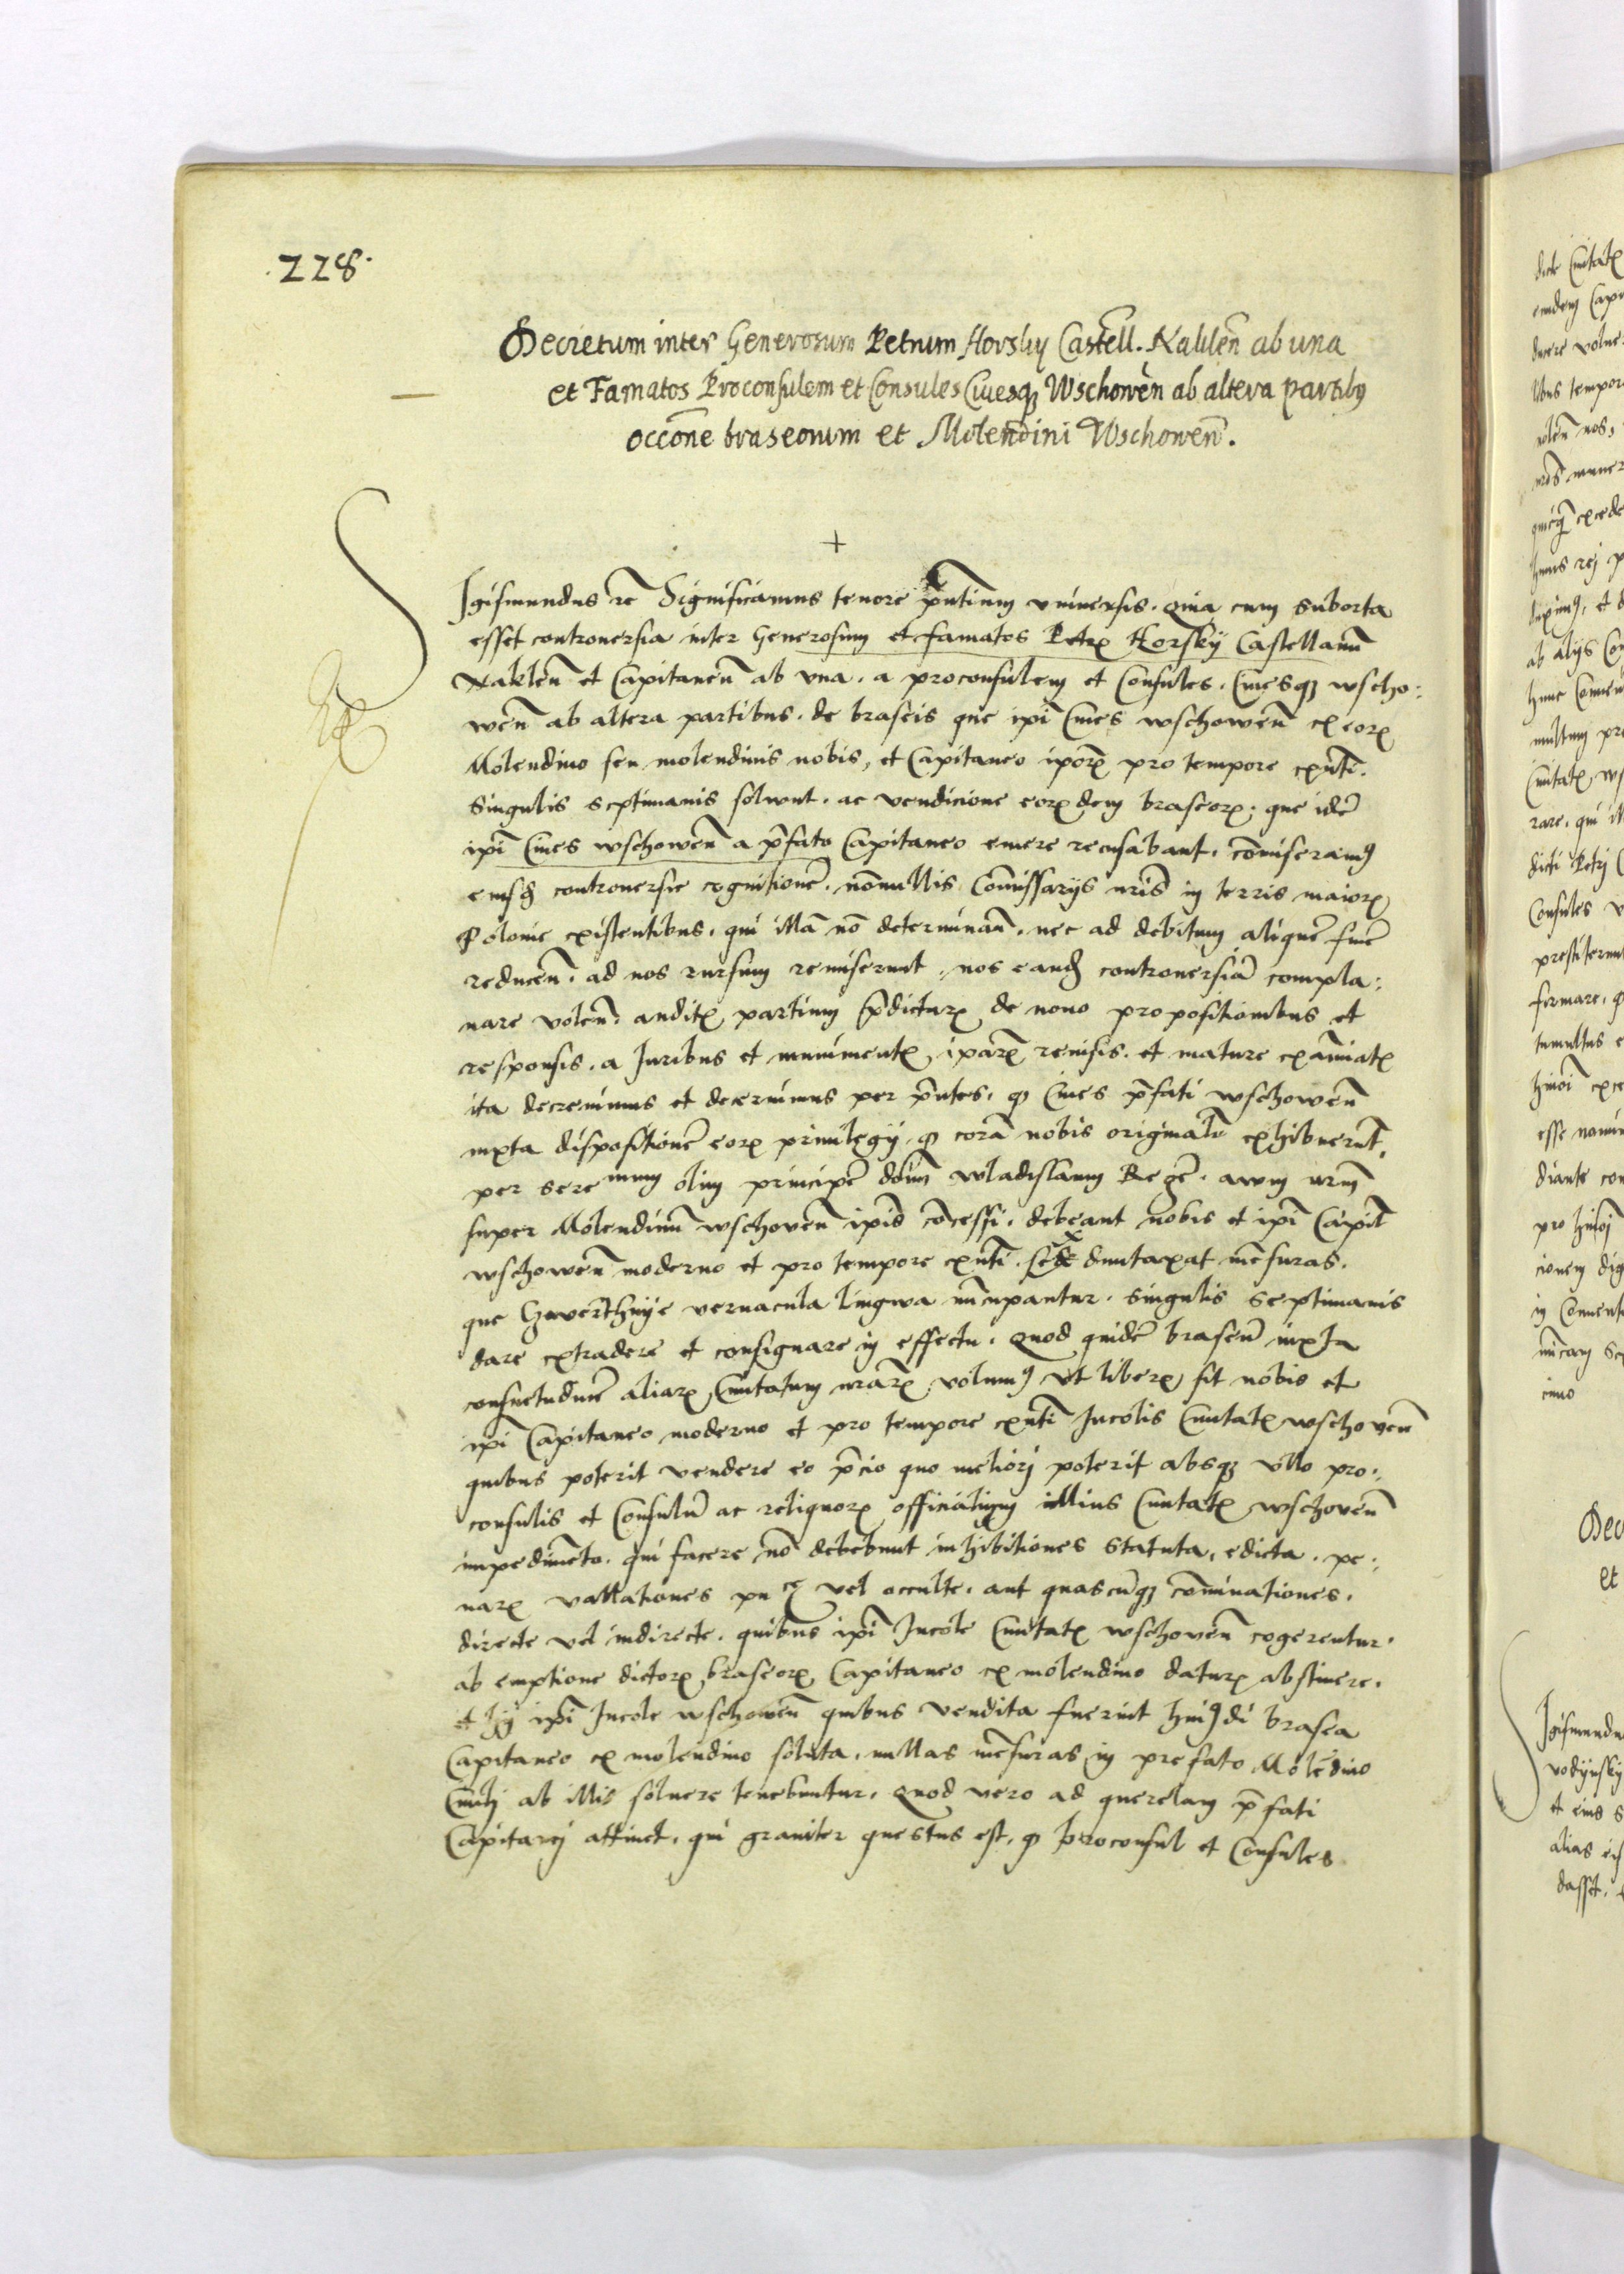 .228.
Decretum inter Generosum Petrum Horsky Castell. Naklen̄ ab una
et Famatos Proconsulem et Consules Ciuesqꝫ Wschowen̄ ab altera partibꝯ
occōne braseorum et Molendini Wschowen̄.
Sigismundus ꝛc Significamus tenore p̄ntium vniuersis. Quia cum suborta
esset controuersia inter Generosum et famatos Petrꝫ Horsky Castellanū
Naklen̄ et Capitaneū ab vna. a proconsulem et Consules. Ciuesqꝫ wscho:
wen̄ ab altera partibus. de braseis que ip̄i Ciues wschowen̄ ex eorꝫ
Molendino seu molendinis nobis, et Capitaneo ip̄orꝫ pro tempore exn̄ti.
Singulis septimanis soluunt. ac vendicione eorꝫdem braseorꝫ. que idē
ip̄i Ciues wschowen̄ a p̄fato Capitaneo emere recusabant. cōmiseramꝯ
eiusꝫ controuersie cognitionē. nōnullis Cōmissarijs nr̄is in terris maiorꝫ
Polonie existentibus. qui illā nō determinan̄. nec ad debitum aliquē finē
reducen̄. ad nos rursum remiserunt. nos eandꝫ controuersiā compla:
nare volen̄. auditꝫ partium p̄dictarꝫ de nouo propositionibus et
responsis. a Iuribus et munimentꝫ ip̄arꝫ reuisis. et mature exāiatꝫ
ita decreuimus et decernimus per p̄ntes. qꝫ Ciues p̄fati wschowen̄
iuxta dispositionē eorꝫ priuilegij qꝫ corā nobis originale exhibuerūt.
per serenimum olim principē dōnū wladislaum Regē. auum nr̄m
super Molendinū wschowen̄ ip̄is cōcessi. debeant nobis et ip̄i Capit̄
wschowen̄ moderno et pro tempore exn̄ti. sex duntaxat mēsuras.
que Gwerthnye vernacula lingwa nūcupantur. singulis septimanis
dare extradere et consignare in effectu. Quod quidē braseū iuxta
consuetudinē aliarꝫ Ciuitatum nr̄arꝫ volumꝯ vt liberꝫ sit nobis et
ip̄i Capitaneo moderno et pro tempore exn̄ti Incolis Ciuitatꝫ wschowen̄
quibus poterit vendere eo p̄cio quo meliori poterit absqꝫ vllo pro:
consulis et Consulū ac reliquorꝫ officialium illius Ciuitatꝫ wschowen̄
impedimēto. qui facere nō debebunt inhibitiones statuta, edicta. pe:
narꝫ vallationes vel occulte. aut quascūqꝫ cōminationes.
directe vel indirecte. quibus ip̄i Incole Ciuitatꝫ wschowen̄ cogerentur.
ab emptione dictorꝫ braseorꝫ Capitaneo ex molendino daturꝫ abstinere.
et hij ip̄i Incole wschowen̄ quibus vendita fuerint huiꝯdi brasea
Capitaneo ex molendino soluta. nullas mēsuras in prefato Molēdino
Ciuili ab illis soluere tenebuntur. Quod vero ad querelam p̄fati
Capitanei attinet. qui grauiter questus est. qꝫ proconsul et Consules